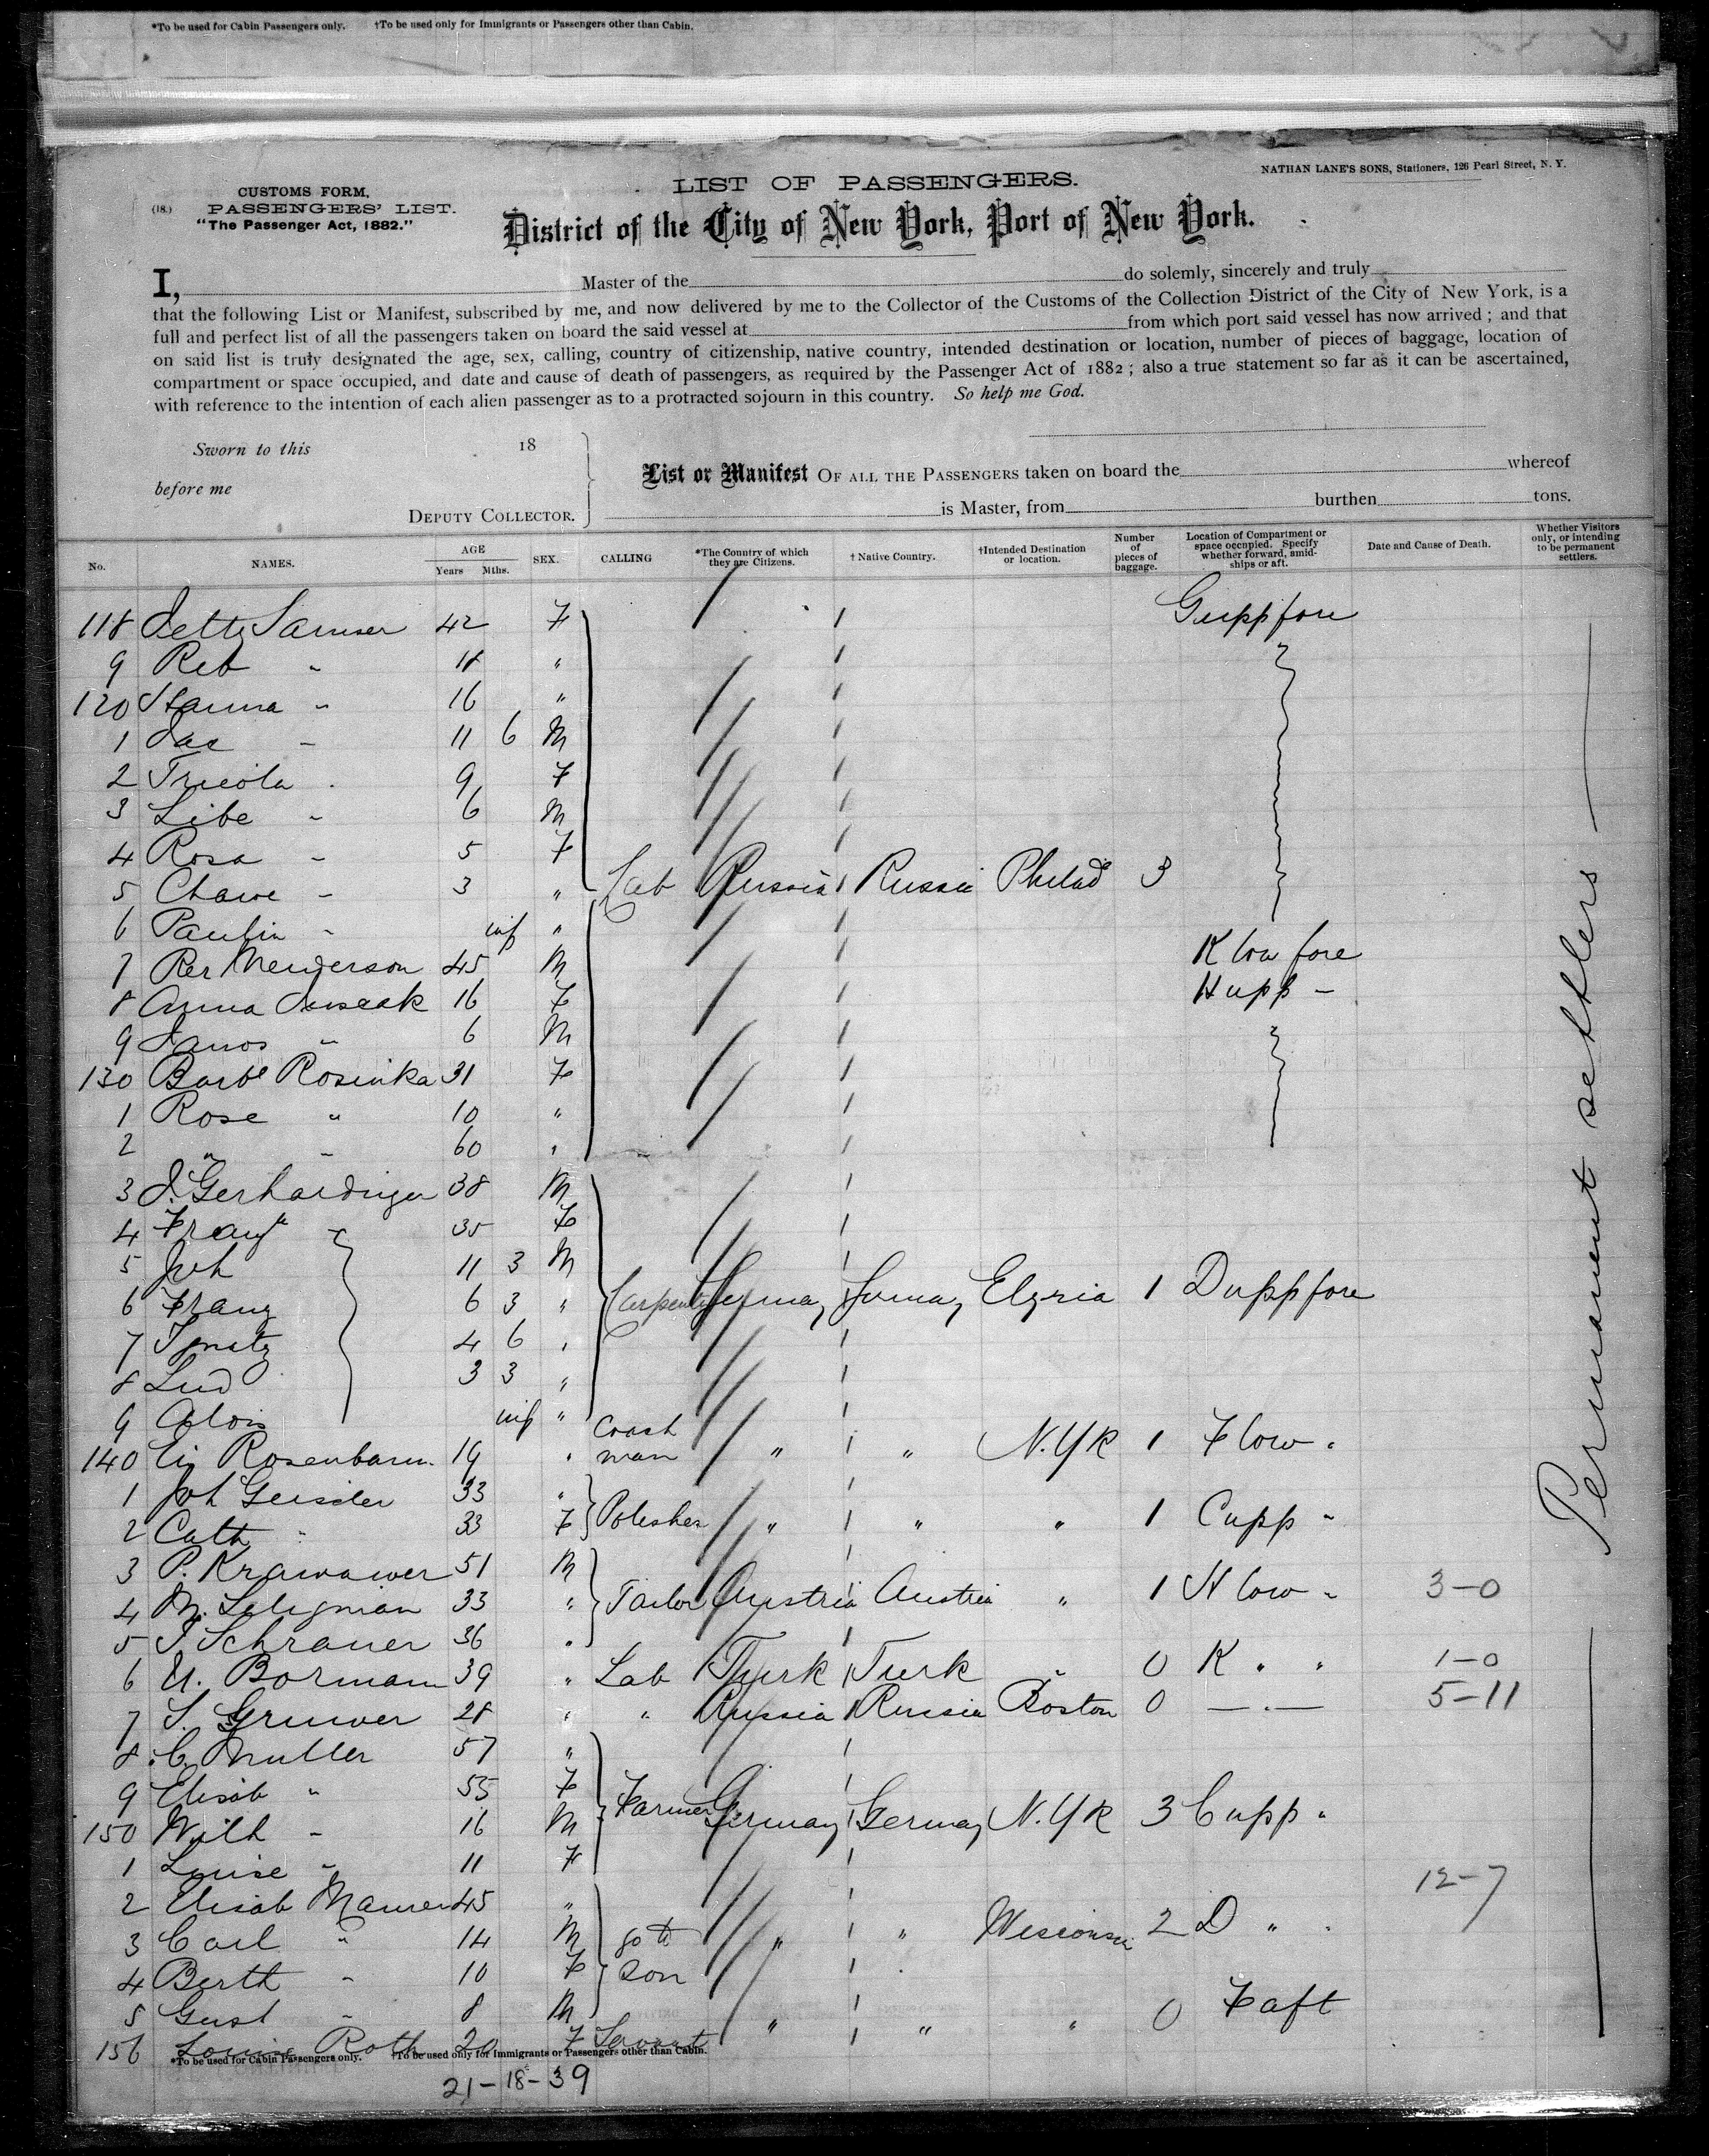 *To be used for Cabin Passengers only. †To be used only for Immigrants or Passengers other than Cabin.
NATHAN LANE'S SONS, Stationers, 126 Pearl Street, N. Y.
CUSTOMS FORM,
(18.) PASSENGERS' LIST.
"The Passenger Act, 1882."
LIST OF PASSENGERS.
District of the City of New York, Port of New York.
I, Master of the do solemly, sincerely and truly
that the following List or Manifest, subscribed by me, and now delivered by me to the Collector of the Customs of the Collection District of the City of New York, is a
full and perfect list of all the passengers taken on board the said vessel at from which port said vessel has now arrived; and that
on said list is truly designated the age, sex, calling, country of citizenship, native country, intended destination or location, number of pieces of baggage, location of
compartment or space occupied, and date and cause of death of passengers, as required by the Passenger Act of 1882; also a true statement so far as it can be ascertained,
with reference to the intention of each alien passenger as to a protracted sojourn in this country. So help me God.
Sworn to this 18
before me
DEPUTY COLLECTOR.
List or Manifest OF ALL THE PASSENGERS taken on board the whereof
is Master, from burthen tons.
No. NAMES. AGE Years Mths. SEX. CALLING *The Country of which they are Citizens. † Native Country. †Intended Destination or location. Number of pieces of baggage. Location of Compartment or space occupied. Specify whether forward, amidships or aft. Date and Cause of Death. Whether Visitors only, or intending to be permanent settlers.
118 42 F G upp fore
9 Reb " 18 "
120 Hanna " 16 "
1 " 11 6 M
2 9 F
3 Libe " 6 M
4 Rosa " 5 F
5 Chawe " 3 " Lab Russia Russia Philad 3
6 Paulin " inf "
7 45 M K low fore
8 Anna 16 F H upp "
9 Janos " 6 M
130 Barb Rosinka 31 F
1 Rose " 10 "
2 " " 60 "
3 J. Gerhardinger 38 M
4 35 F
5 Joh 11 3 M
6 Franz 6 3 " Carpenter Germay Germay Elyria 1 D upp fore
7 Ignatz 4 6 "
8 Lud 3 3 "
9 Alois inf "
140 Rosenbaum 19 " Coach man " " N.Yk 1 F low "
1 Joh 33 "
2 Cath " 33 F Polisher " " " 1 C upp "
3 P. 51 M
4 M. Seligman 33 " Tailor Austria Austria " 1 H low " 3-0
5 J. Schraner 36 "
6 Bormann 39 " Lab Turk Turk " 0 K " " 1-0
7 S. Gruwer 28 " " Russia Russia Boston 0 — " — 5-11
8 C. Muller 57 "
9 Elisab " 55 F
150 Wilh " 16 M Farmer Germay Germay N.Yk 3 C upp "
1 Louise " 11 F
12-7
2 Elisab Maurer 45 "
3 Carl " 14 M " " Wisconsin 2 D " "
4 Berth " 10 F son
5 Gust " 8 M
156 Louise Roth 20 F Servant " " " 0 F aft
*To be used for Cabin Passengers only. †To be used only for Immigrants or Passengers other than Cabin.
21-18-39
Permanent settlers